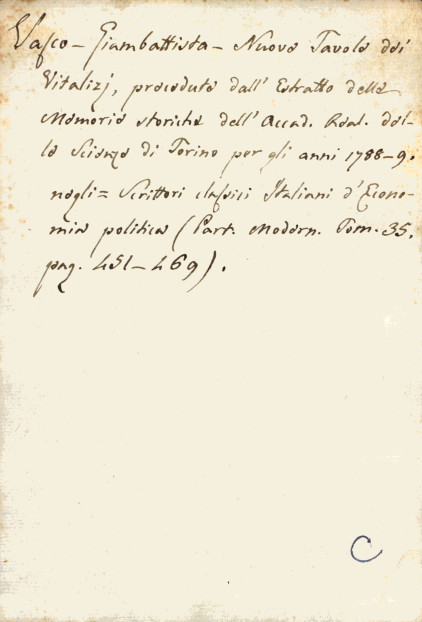 Vasco – Giambattista – Nuove Tavole dei
Vitalizj, precedute dall' Estratto delle
Memorie storiche dell' Accad. Real. del-
le Scienze di Torino per gli anni 1788-9.
negli = Scrittori classici Italiani d' Econo-
mia politica (Part. Modern. Tom. 35.
pag. 451-469).
C